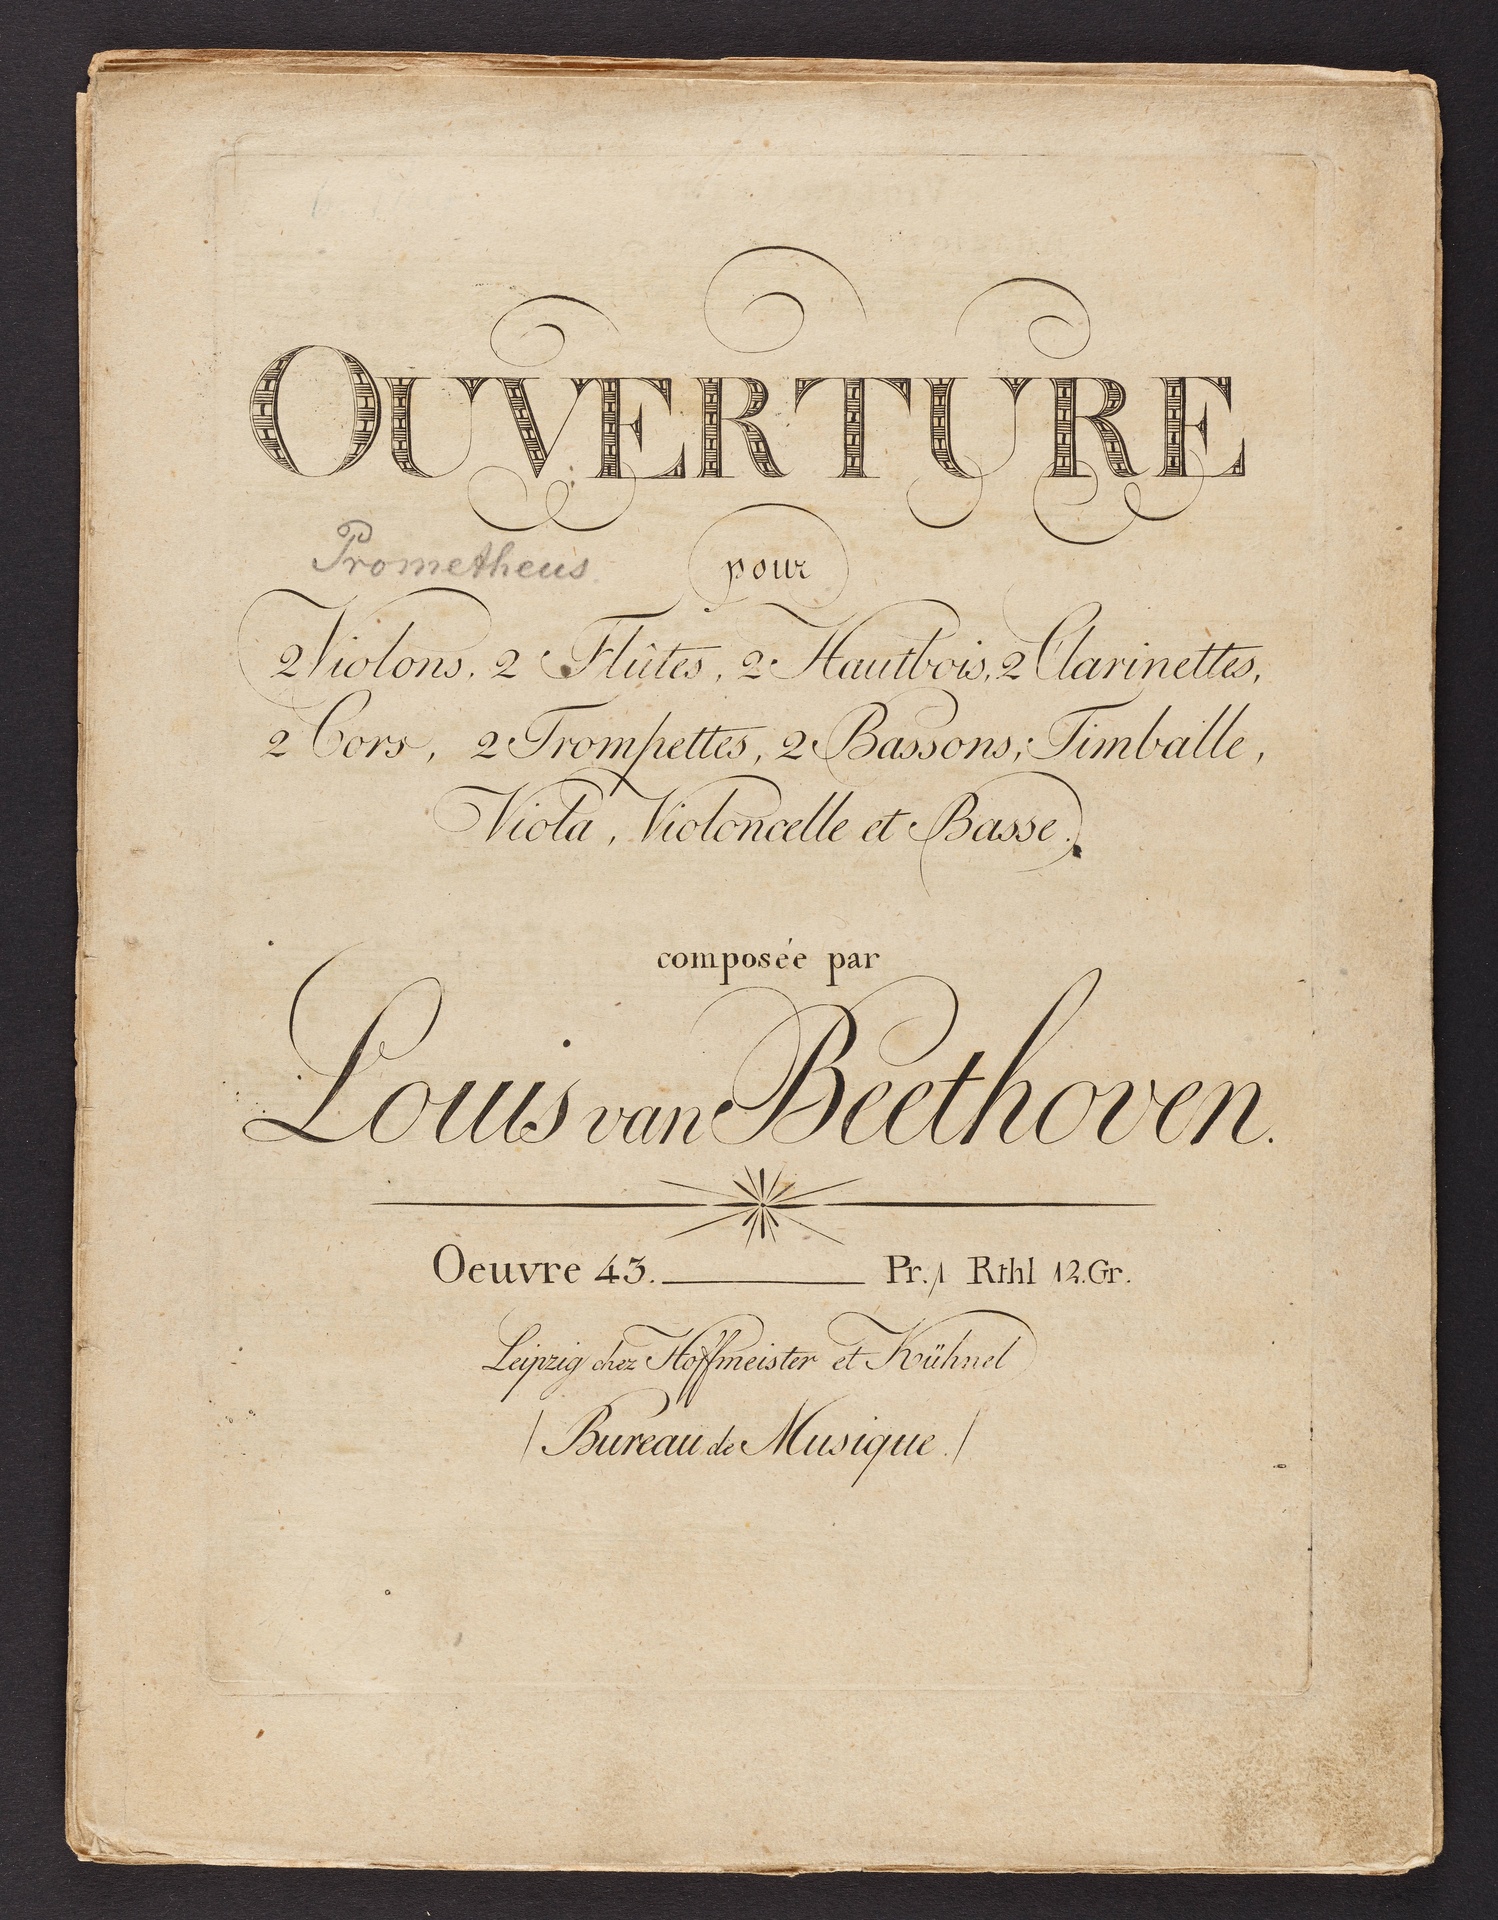 OUVERTURE
Prometheus
pour
2 Violons, 2 Flûtes, 2 Hautbois, 2 Clarinettes,
2 Cors, 2 Trompettes, 2 Bassons, Timballe,
Viola, Violoncelle et Basse.
composée par
Louis van Beethoven.
Oeuvre 43. Pr. 1 Rthl 12. Gr.
Leipzig chez Hoffmeister et Kühnel
(Bureau de Musique.)